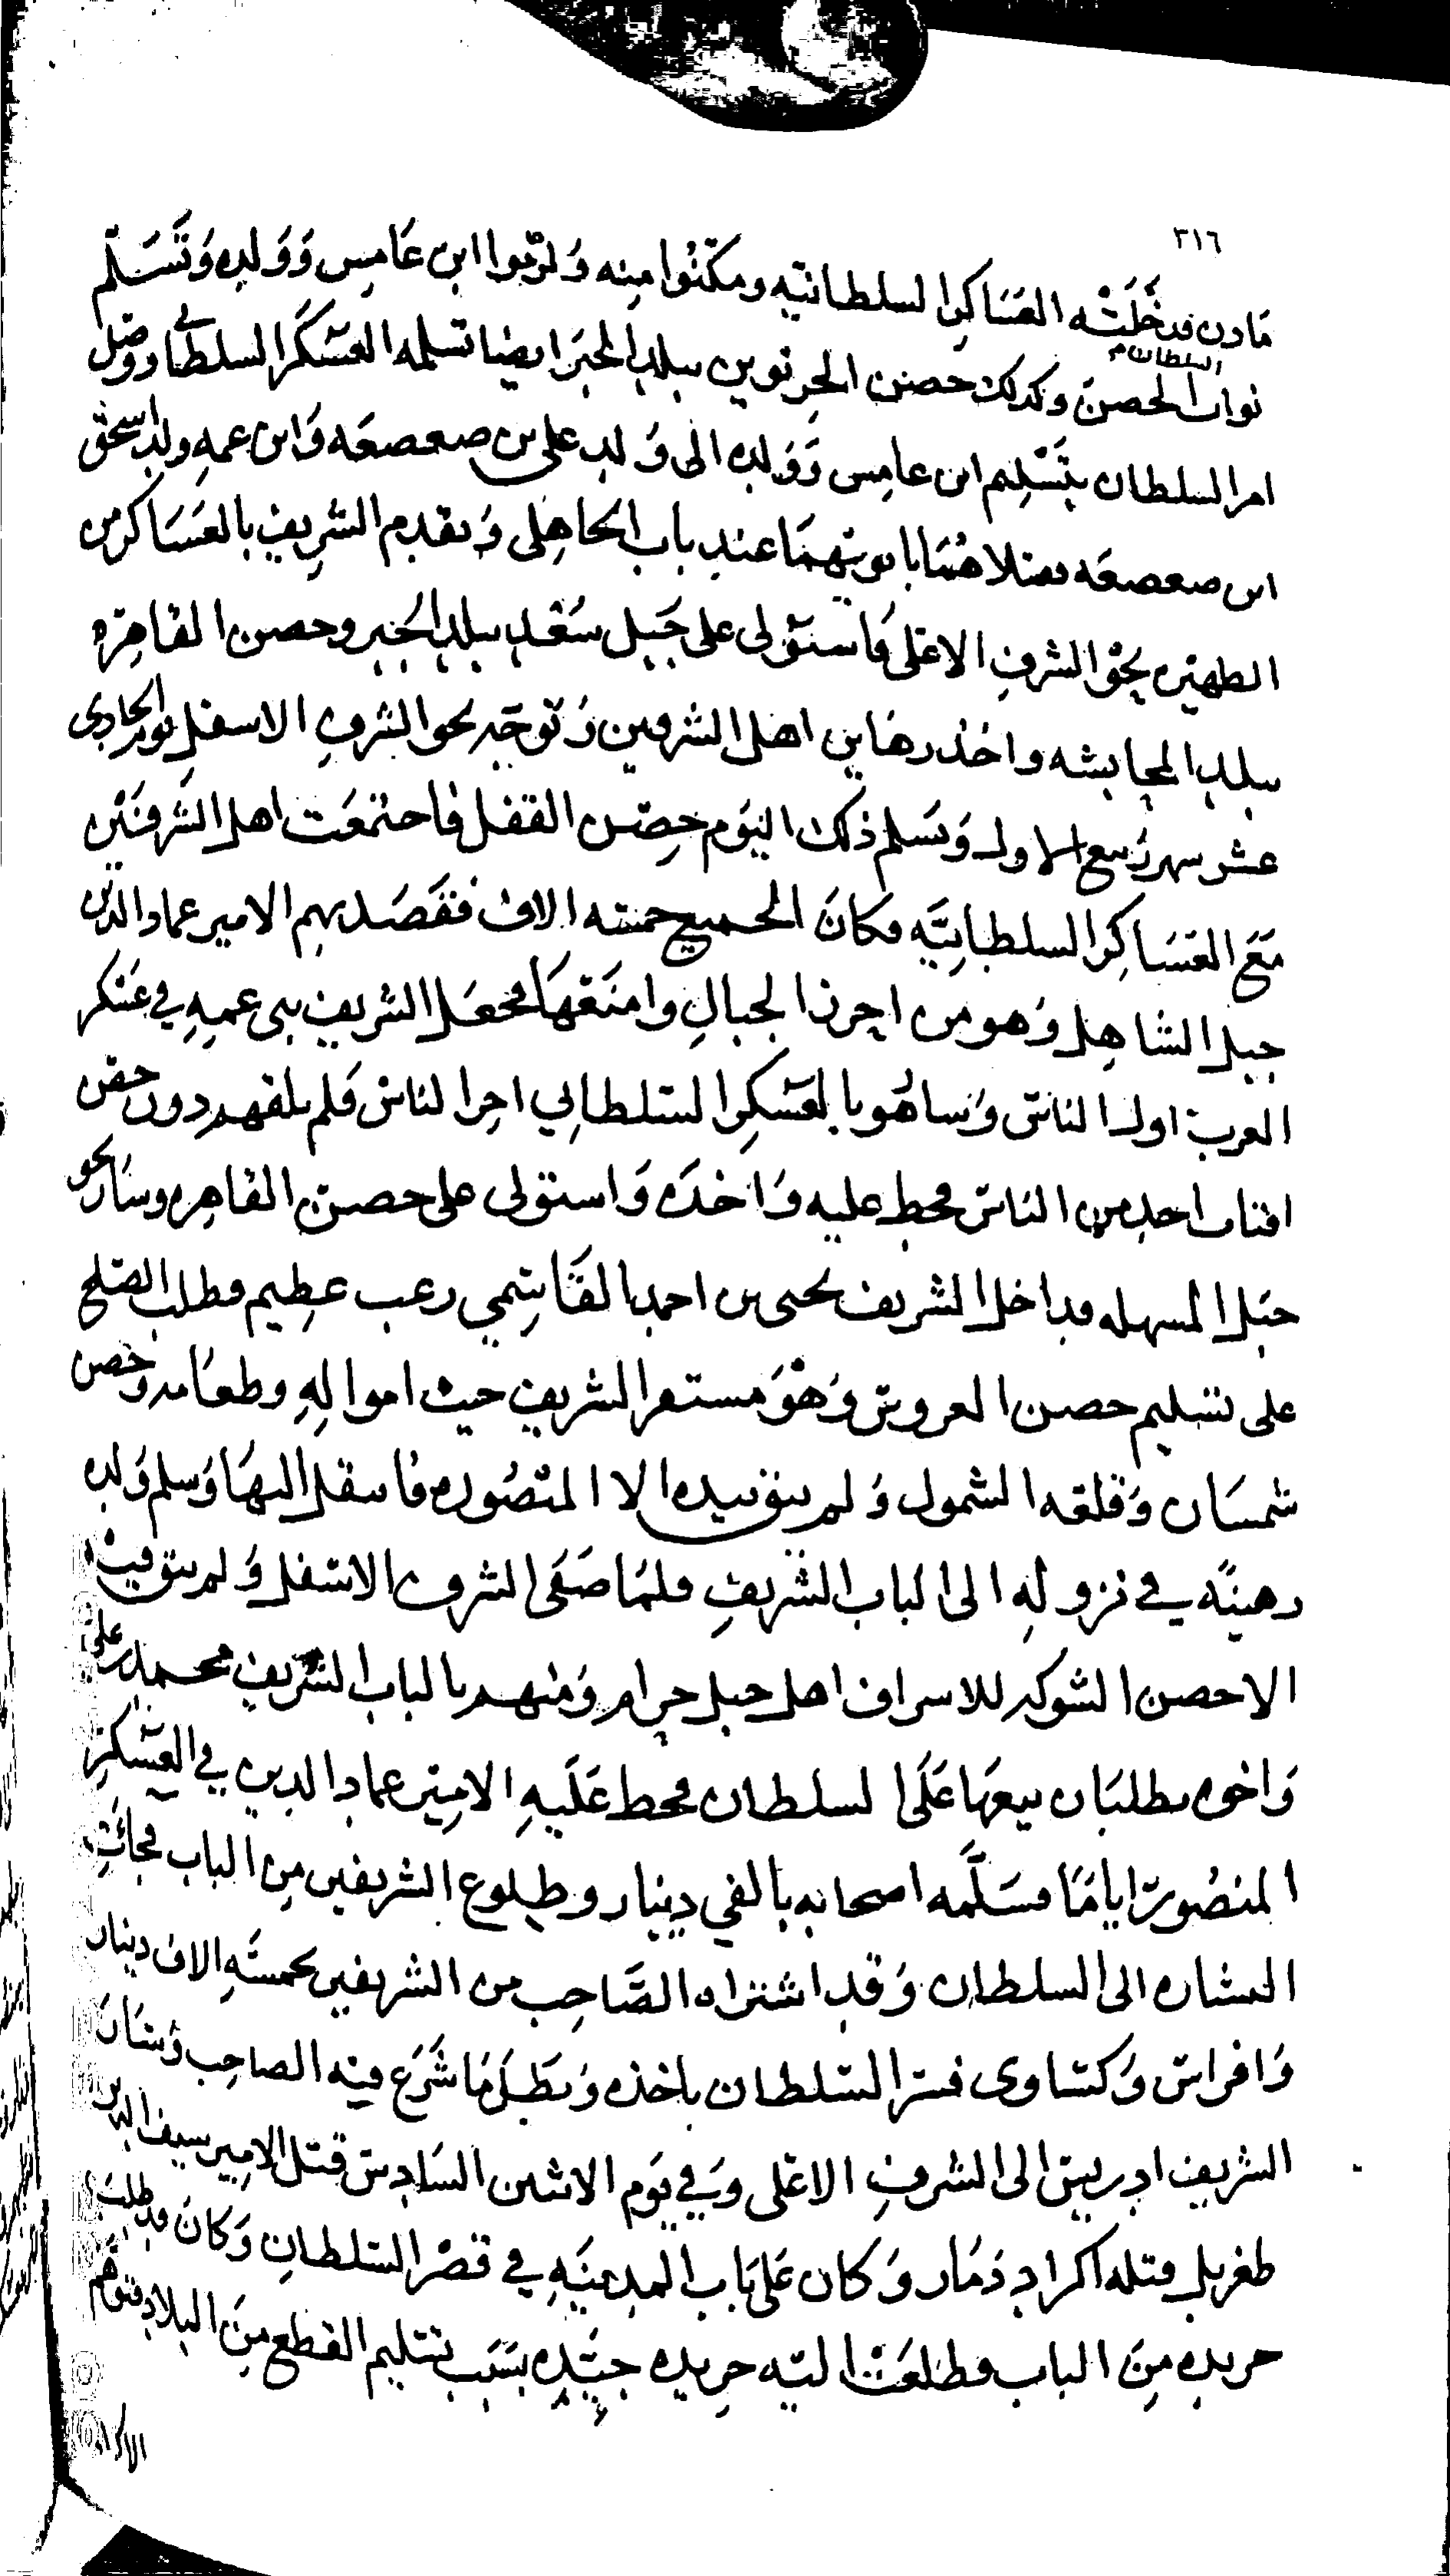 ٣١٦
مادن فدخلته العساكر السلطانيه ومكنوا منه ولزموا ابن عامس وولده وتسلم
السلطان
نواب الحصن وكذلك حصن الجرنوين ببلد الخبر ايضا تسلمه العسكر السلطاني ووصل
امر السلطان بتسليم ابن عامس وولده الى ولد على بن صعصعه وابن عمه ولد اسحق
ابن صعصعه فقتلاهما بابويهما عند باب الجاهلى وتقدم الشريف بالعساكر من
الظهيره نحو الشرف الاعلى فاستولى على جبل سعد ببلد الجبر وحصن القاهره
ببلد المحابشه واخذ رهاين اهل الشرفين وتوجه نحو الشرف الاسفل يوم الحادى
عشر شهر ربيع الاول وتسلم ذلك اليوم حصن القفل فاجتمعت اهل الشرفين
مع العساكر السلطانيه فكان الجميع خمسه الاف فقصد بهم الامير عماد الدين
جبل الشاهل وهو من احرز الجبال وامنعها فجعل الشريف بنى عمه في عسكر
العرب اول الناس وساق هو بالعسكر السلطاني اخر الناس فلم يلقهم دون حصن
افتاب احد من الناس فحط عليه واخذه واستولى على حصن القاهره وسار نحو
جبل المسهله فداخل الشريف يحيى بن احمد القاسمي رعب عظيم فطلب الصلح
على تسليم حصن العروس وهو مستقر الشريف حيث امواله وطعامه وحصن
شمسان وقلعه الشمول ولم يبق بيده الا المنصوره فانتقل اليها وسلم ولده
رهينه في نزوله الى الباب الشريف فلما صفى الشرف الاسفل ولم يبق فيه
الا حصن الشوكه للاسراف اهل جبل حرام ومنهم بالباب الشريف محمد بن على
واخوه يطلبان بيعها على السلطان فحط عليه الامير عماد الدين في العسكر
المنصور اياما فسلمه اصحابه بالفي دينار وطلوع الشريفين من الباب فجات
البشاره الى السلطان وقد اشتراه الصاحب من الشريفين بخمسه الاف دينار
وافراس وكساوى فسر السلطان باخذه وبطل ما شرع فيه الصاحب وسار
الشريف ادريس الى الشرف الاعلى وفي يوم الاثنين السادس قتل الامير سيف الدين
طغريل قتله اكراد ذمار وكان على باب المدينه في قصر السلطان وكان قد طلب
جريده من الباب فطلعت اليه جريده جيده بسبب تسليم القطع من البلاد فتوهم
الاكراد